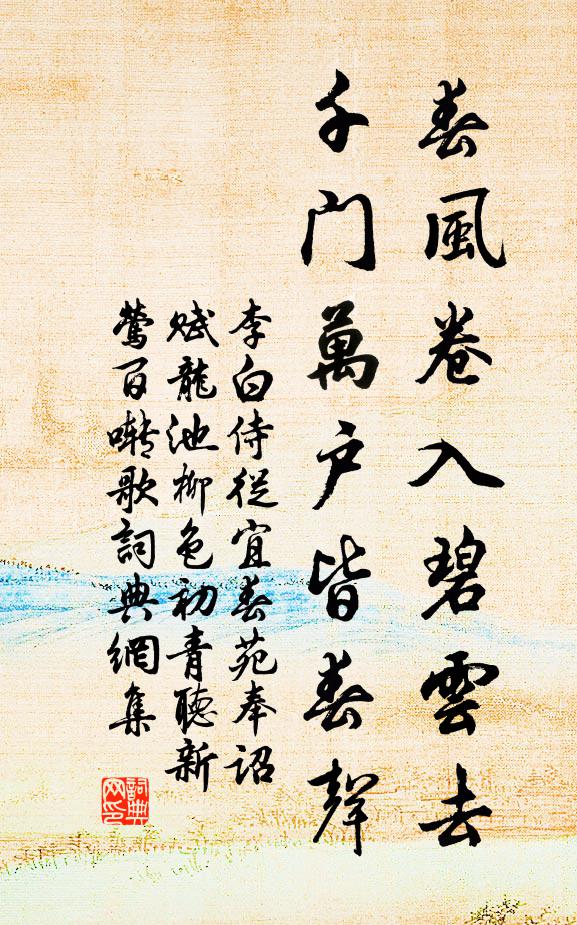 春風卷入碧雲去
千門萬户皆春聲
李白侍從宜春苑奉詔
賦龍池柳色初青聽新
鶯百囀歌詞典網集
詞典
网印